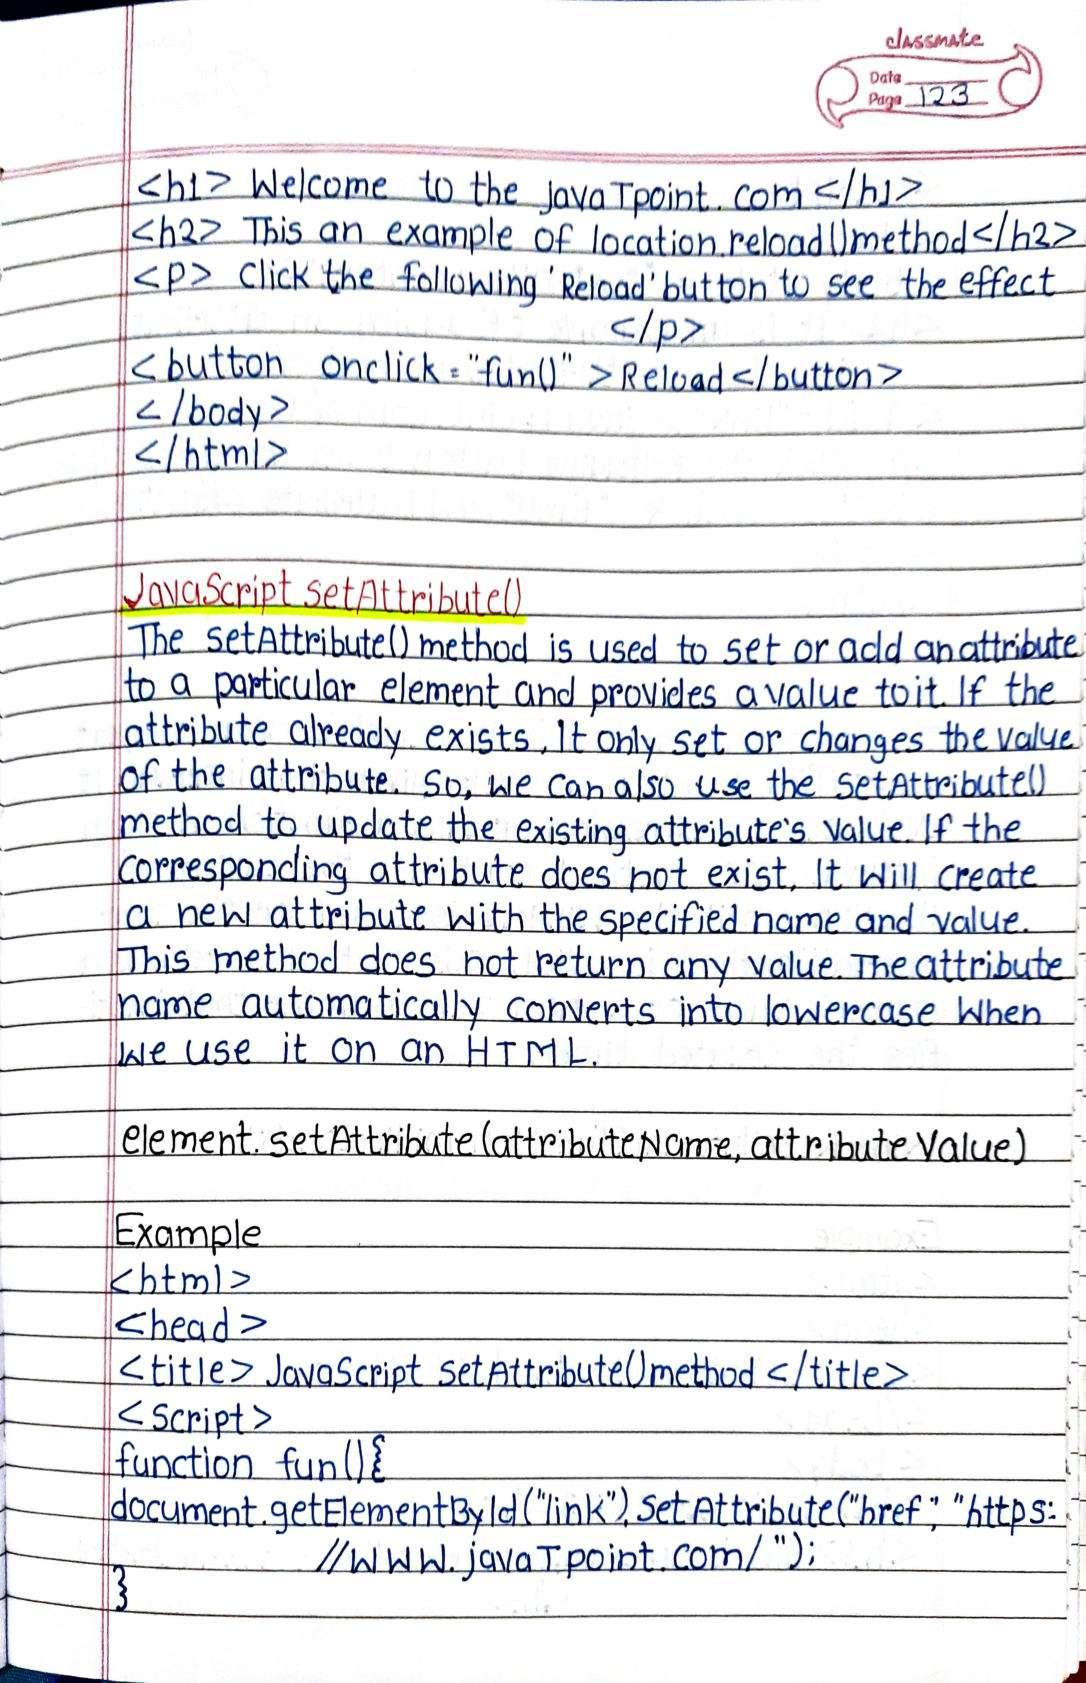 classmate
Date
Page 123
<h1> Welcome to the javaTpoint.com </h1>
<h2> This an example of location.reload() method </h2>
<p> Click the following 'Reload' button to see the effect
</p>
<button onclick = "fun()" > Reload </button>
</body>
</html>
JavaScript setAttribute()
The setAttribute() method is used to set or add an attribute
to a particular element and provides a value to it. If the
attribute already exists, It only set or changes the value
of the attribute. So, we can also use the setAttribute()
method to update the existing attribute's value. If the
corresponding attribute does not exist, It will create
a new attribute with the specified name and value.
This method does not return any value. The attribute
name automatically converts into lowercase when
we use it on an HTML.
element.setAttribute(attributeName, attributeValue)
Example
<html>
<head>
<title> JavaScript setAttribute() method </title>
<script>
function fun(){
document.getElementById("link").SetAttribute("href", "https:
//www.javaTpoint.com/");
}